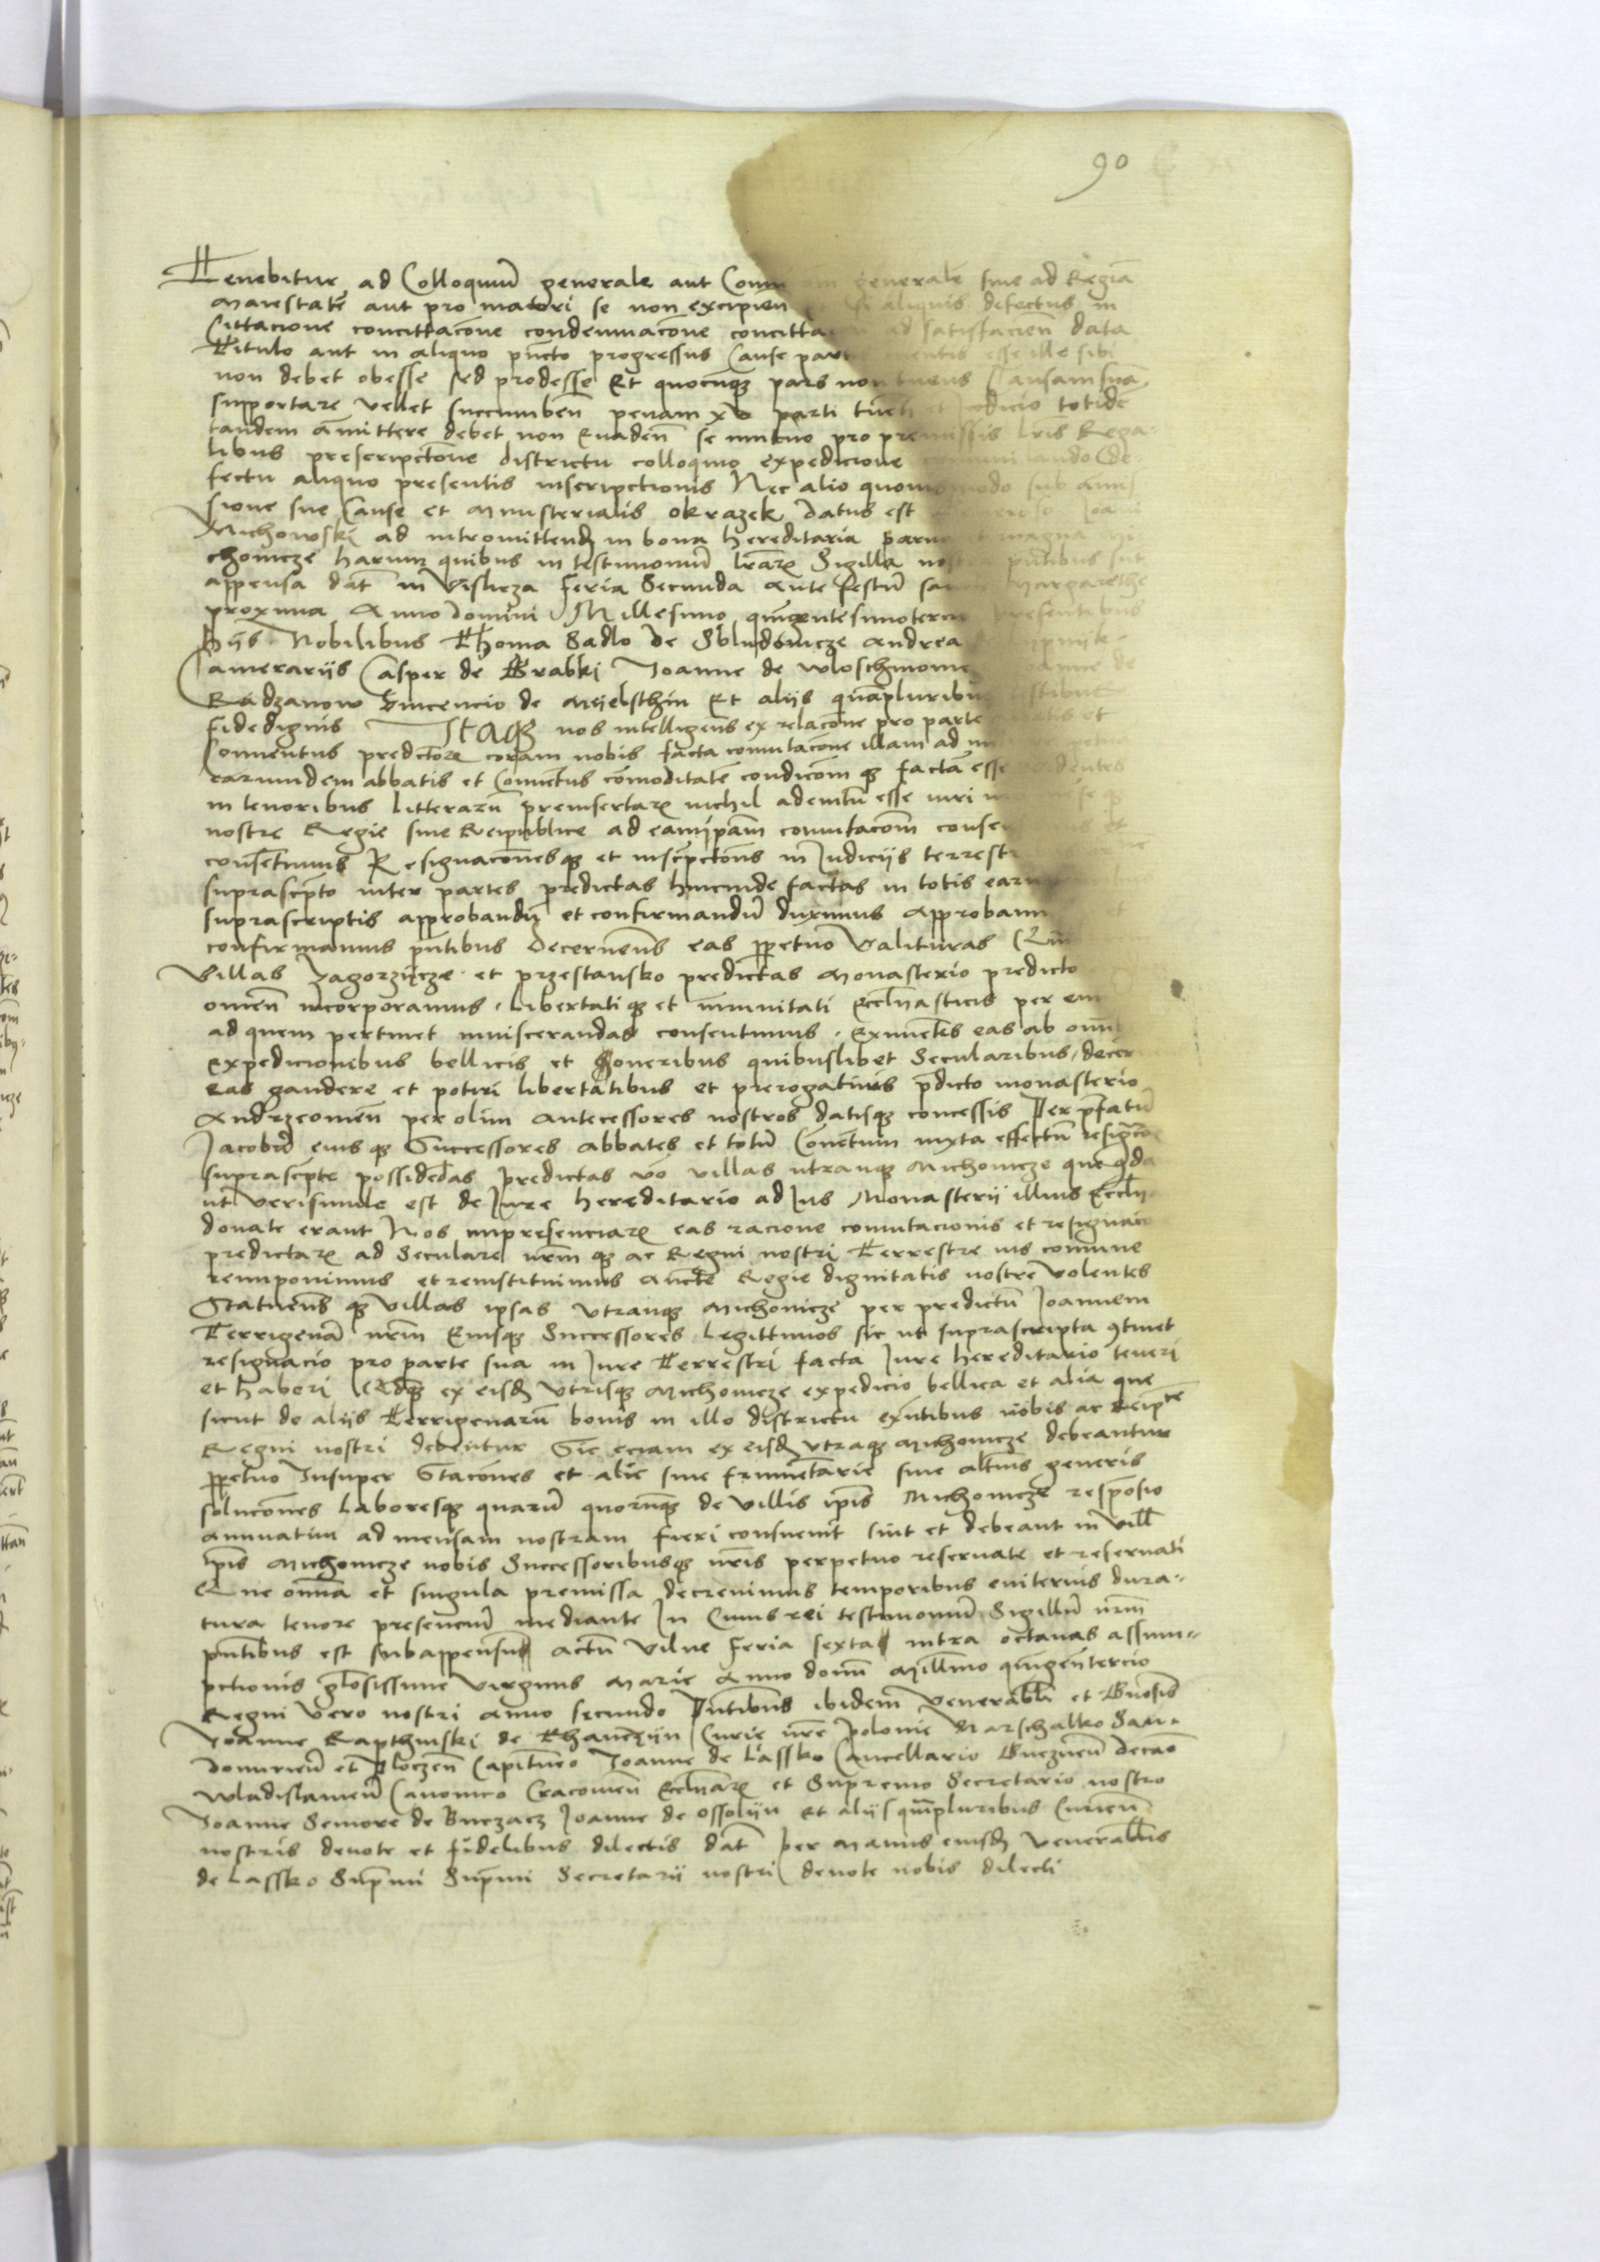 90
Tenebitur ad Colloquium generale aut generale siue ad Regiā
Maiestatē aut pro maiori se non excipien aliquis defectus in
Cittacione concittacōne condemnacōne ad satisfacien data
Titulo aut in aliquo pūcto progressus Cause esse ille sibi
non debet obesse sed prodesse Et quocūqꝫ pars non tuens Causam suā
supportare vellet succumben penam xv parti Judicio totidē
tandem amittere debet non Euaden se pro premissis lris Rega-
libus prescripctiōne districtu colloquio expedicione de
fectu aliquo presentis inscripctionis Nec alio quouismodo sub ami
sione sue Cause et Ministerialis okrazek datus est
Michowski ad intromittendꝫ in bona hereditaria et magna mi
chowicze harum quibus in testimoniū lrāꝝ Sigilla pntibus sūt
appensa dat in Vislicza feria Secunda Ante festū Margarethe
proxima Anno domini Millesimo quīgentesimotercio presentibus
hijs Nobilibus Thoma Sadlo de Andrea
Camerarijs Casper de Grabki Joanne de Joanne de
Radzanow Vincencio de Mijelsthin Et alijs quāpluribus testibus
fidedignis ITAQꝫ nos intelligens ex relacōne pro parte et
Conuentus predictoꝝ coram nobis facta comutacōne illam ad
earumdem abbatis et Conuētus cōmoditatē condicōm qꝫ factā esse
in tenoribus litterarū preinsertaꝝ nichil ademtū esse iuri
nostre Regie siue Reipublice ad eam ipam comutacōm
consētimus Resignacōnesqꝫ et inscrpctōns in Judicijs terrestr
suprascrpto inter partes predictas hincinde factas in totis
suprascriptis approbandū et confirmandū duximus Approbam
confirmamus pntibus Decernens eas ppetuo Valituras
Villas Zagorzycze et przestansko predictas Monasterio predicto
omēn incorporamus libertatiqꝫ et īmunitati Eccliasticis per
ad quem pertinet inuiscerandas consentimus Eximētes eas ab omni
Expedicionibus bellicis et honeribus quibuslibet Secularibus decer
eas gaudere et potiri libertatibus et prerogatiuis pdicto monasterio
Andrzeouien per olim Antecessores nostros datisqꝫ concessis Per pfatū
Jacobū eiusqꝫ Successores abbates et totū Conētum iuxta effectū
suprascrpte possidēdas predictas vō villas utranqꝫ Michowicze
ut verisimile est de Jure hereditario ad Jus Monasterij illius
donate erant Nos inpresenciaꝝ eas racione comutacionis et resignaco
predictaꝝ ad Seculare nrm qꝫ ac Regni nostri Terrestre ius comune
reimponimus et reinstituimus aucte Regie dignitatis nostre Volentes
Statuens qꝫ villas ipsas utranqꝫ Michowicze per predictū Joannem
Terrigenā nrm Eiusqꝫ Successores Legittimos sic ut suprascripta ꝯtinet
resignacio pro parte sua in Jure Terrestri facta Jure hereditario teneri
et haberi Qdqꝫ ex eisdꝫ Utrisqꝫ Michowicze expedicio bellica et alia que
sicut de alijs Terrigenarū bonis in illo districtu exntibus nobis ac
Regni nostri debentur Sic eciam ex eisdꝫ utraqꝫ Michowicze debeantur
ppetuo Insuper Stacōnes et alie siue frumētarie siue alterius generis
solucōnes Laboresqꝫ quarū quorūqꝫ de villis ipis Michowicze respōsio
annuatim ad mensam nostram fieri consueuit sint et debeant in vill
ipis Michowicze nobis Successoribusqꝫ nris perpetuo reseruate et reseruati
Que omnia et singula premissa decreuimus temporibus euiternis dura-
tura tenore presenciū mediante In Cuius rei testimoniū Sigillū nrm
pntibus est subappensum Actū Vilne feria sexta intra octauas assum-
pctionis gloSissime Virginis Marie Anno domi Millmo quīgentercio
Regni Vero nostri anno secundo Pntibus ibidem Venerabli et
Joanne Rapthinski de Curie nre polonie Marschalko San-
domirien et Plocēn Capitaneo Joanne de Lassko Cancellario Gneznen decano
Wladislauien Canonico Cracouien Eccliaꝝ et Supremo Secretario nostro
Joanne Seniore de Buczacz Joanne de Ossolijn et alijs quāpluribus Curien
nostris deuote et fidelibus dilectis dat per manus eiusdꝫ Venerabilis
de Lassko Supmi Supmi Secretarij nostri deuote nobis dilecti